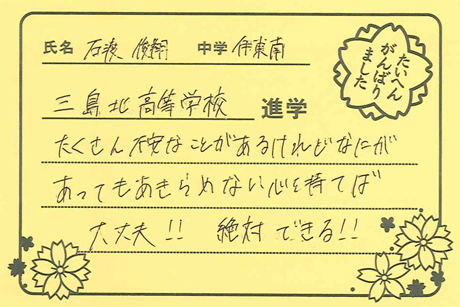 氏名 石渡 俊翔 中学 伊東南
たいへん
がんばり
ました
三島北高等学校 進学
たくさん不安なことがあるけれどなにが
あってもあきらめない心を持てば
大丈夫!! 絶対できる!!